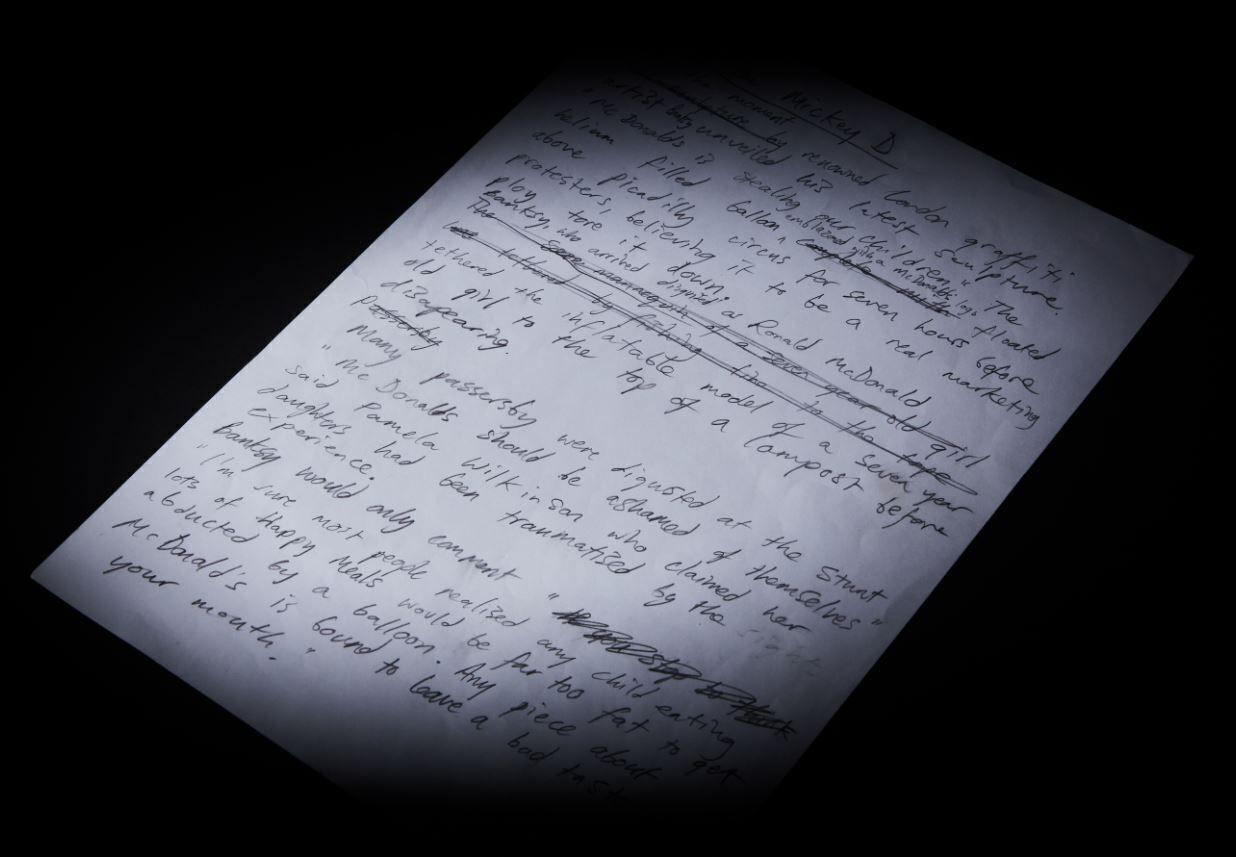 Mickey D
The moment
by renowned London graffiti
artist unveiled his latest Saulpture.
"McDonalds is stealing our children." The
helium filled balloon ^ emblazond with a McDonalds logo complete floated
above Picadilly circus for seven hours before
protesters, believing it to be a real marketing
ploy tore it down.
Banksy, who arrived digused as Ronald McDonald
The Some mannequin of a seven year old girl
was tethered by fishing line to the tope
tethered the inflatable model of a seven year
old girl to the top of a lampost before
disapearing.
Passersby
Many passersby were digusted at the stunt
"McDonalds should be ashamed of themselves"
said Pamela Wilkinson who claimed her
daughters had been traumatised by the sight
experience.
Banksy would only comment "
"I'm sure most people realised any child eating
lots of Happy Meals would be far too fat to get
abducted by a balloon. Any piece about
McDonald's is bound to leave a bad tast
your mouth."